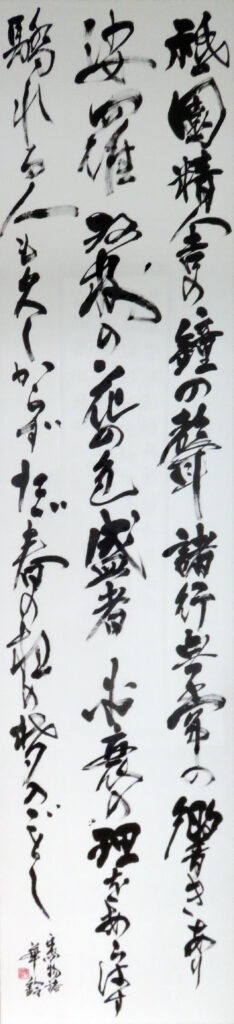 祗園精舎の鐘の聲諸行無常の響きあり
娑羅雙樹の花の色盛者必衰の理をあらはす
驕れる人も久しからず唯春の夜の夢のごとし
平家物語
華鈴